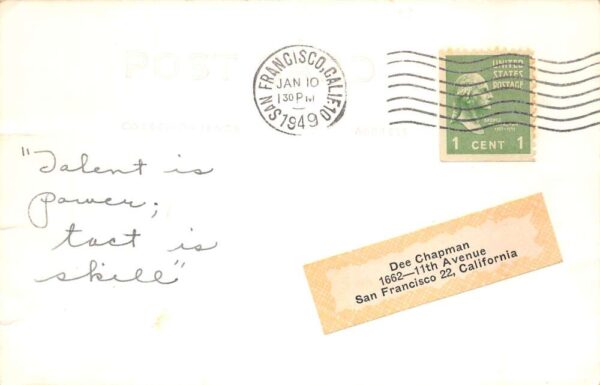 POST CARD
SAN FRANCISCO, CALIF. 10
JAN 10
1 30 PM
1949
UNITED
STATES
POSTAGE
1 CENT 1
"Talent is
power;
tact is
skill"
Dee Chapman
1662—11th Avenue
San Francisco 22, California